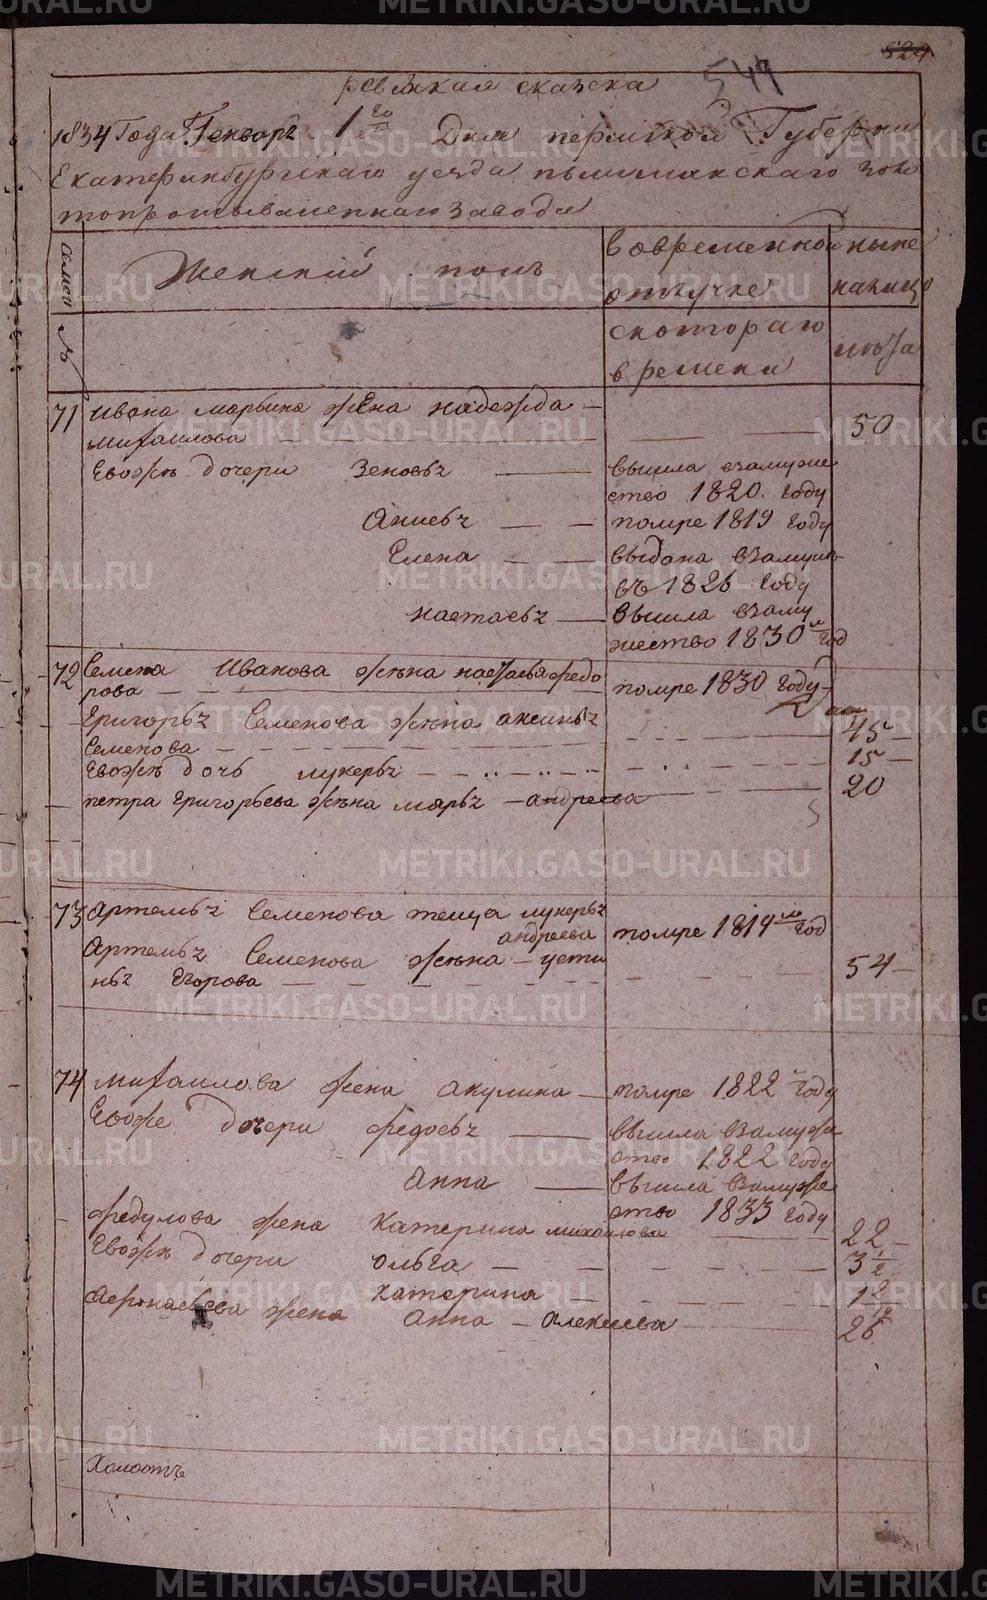 524
549
ревижкая сказска
1834 Года Генворъ 1го Дня пермской Губернии
Екатеринбурскаго уезда пышминскаго золо
топромываленнаго завода
семей
№
Женский полъ
вовременной
отлучке
скотораго
времени
ныне
налицо
лѣта
71 Ивана марьина жена надежда –
михаилова – 50
Евожъ дочери Зеновья – вышла взамуже
ство 1820 году
Аниевъ – помре 1819 году
Елена – выдана взамуж
въ 1826 году
настасья – вышла взаму
жество 1830м год
72 Семена Иванова жена настасья федо
рова – помре 1830 году
Григорья Семенова жена аксинья
Семенова – 45
Евожъ дочь лукерья – 15
петра григорьева жена марья – андреева 20
73 Артемья Семенова теща лукерья
андреева помре 1814м год
Артемья Семенова жена – усти
нья Егорова – 54
74 михаилова жена акулина – помре 1822 году
Евоже дочери федосья – вышла взамуже
ство 1822 году
Анна – вышла взамуже
ство 1833 году
федулова жена катерина михаилова 22
Евожъ дочери ольга – 3 1/2
катерина –
Афонасьева жена Анна – Алексеева 26
Холостъ
METRIKI.GASO-URAL.RU